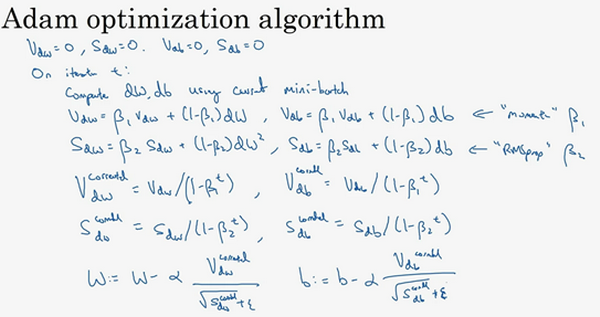 Adam optimization algorithm
Vdw = 0, Sdw = 0. Vdb = 0, Sdb = 0
On iteration t:
Compute dW, db using current mini-batch
Vdw = β₁ Vdw + (1-β₁) dW , Vdb = β₁ Vdb + (1-β₁) db ← "moment" β₁
Sdw = β₂ Sdw + (1-β₂) dW² , Sdb = β₂ Sdb + (1-β₂) db ← "RMSprop" β₂
Vdw^corrected = Vdw / (1-β₁^t) , Vdb^corrected = Vdb / (1-β₁^t)
Sdw^corrected = Sdw / (1-β₂^t) , Sdb^corrected = Sdb / (1-β₂^t)
W := W - α Vdw^corrected / (√Sdw^corrected + ε) b := b - α Vdb^corrected / (√Sdb^corrected + ε)